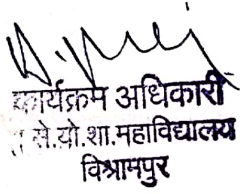 कार्यक्रम अधिकारी
से.यो.शा.महाविद्यालय
विश्रामपुर